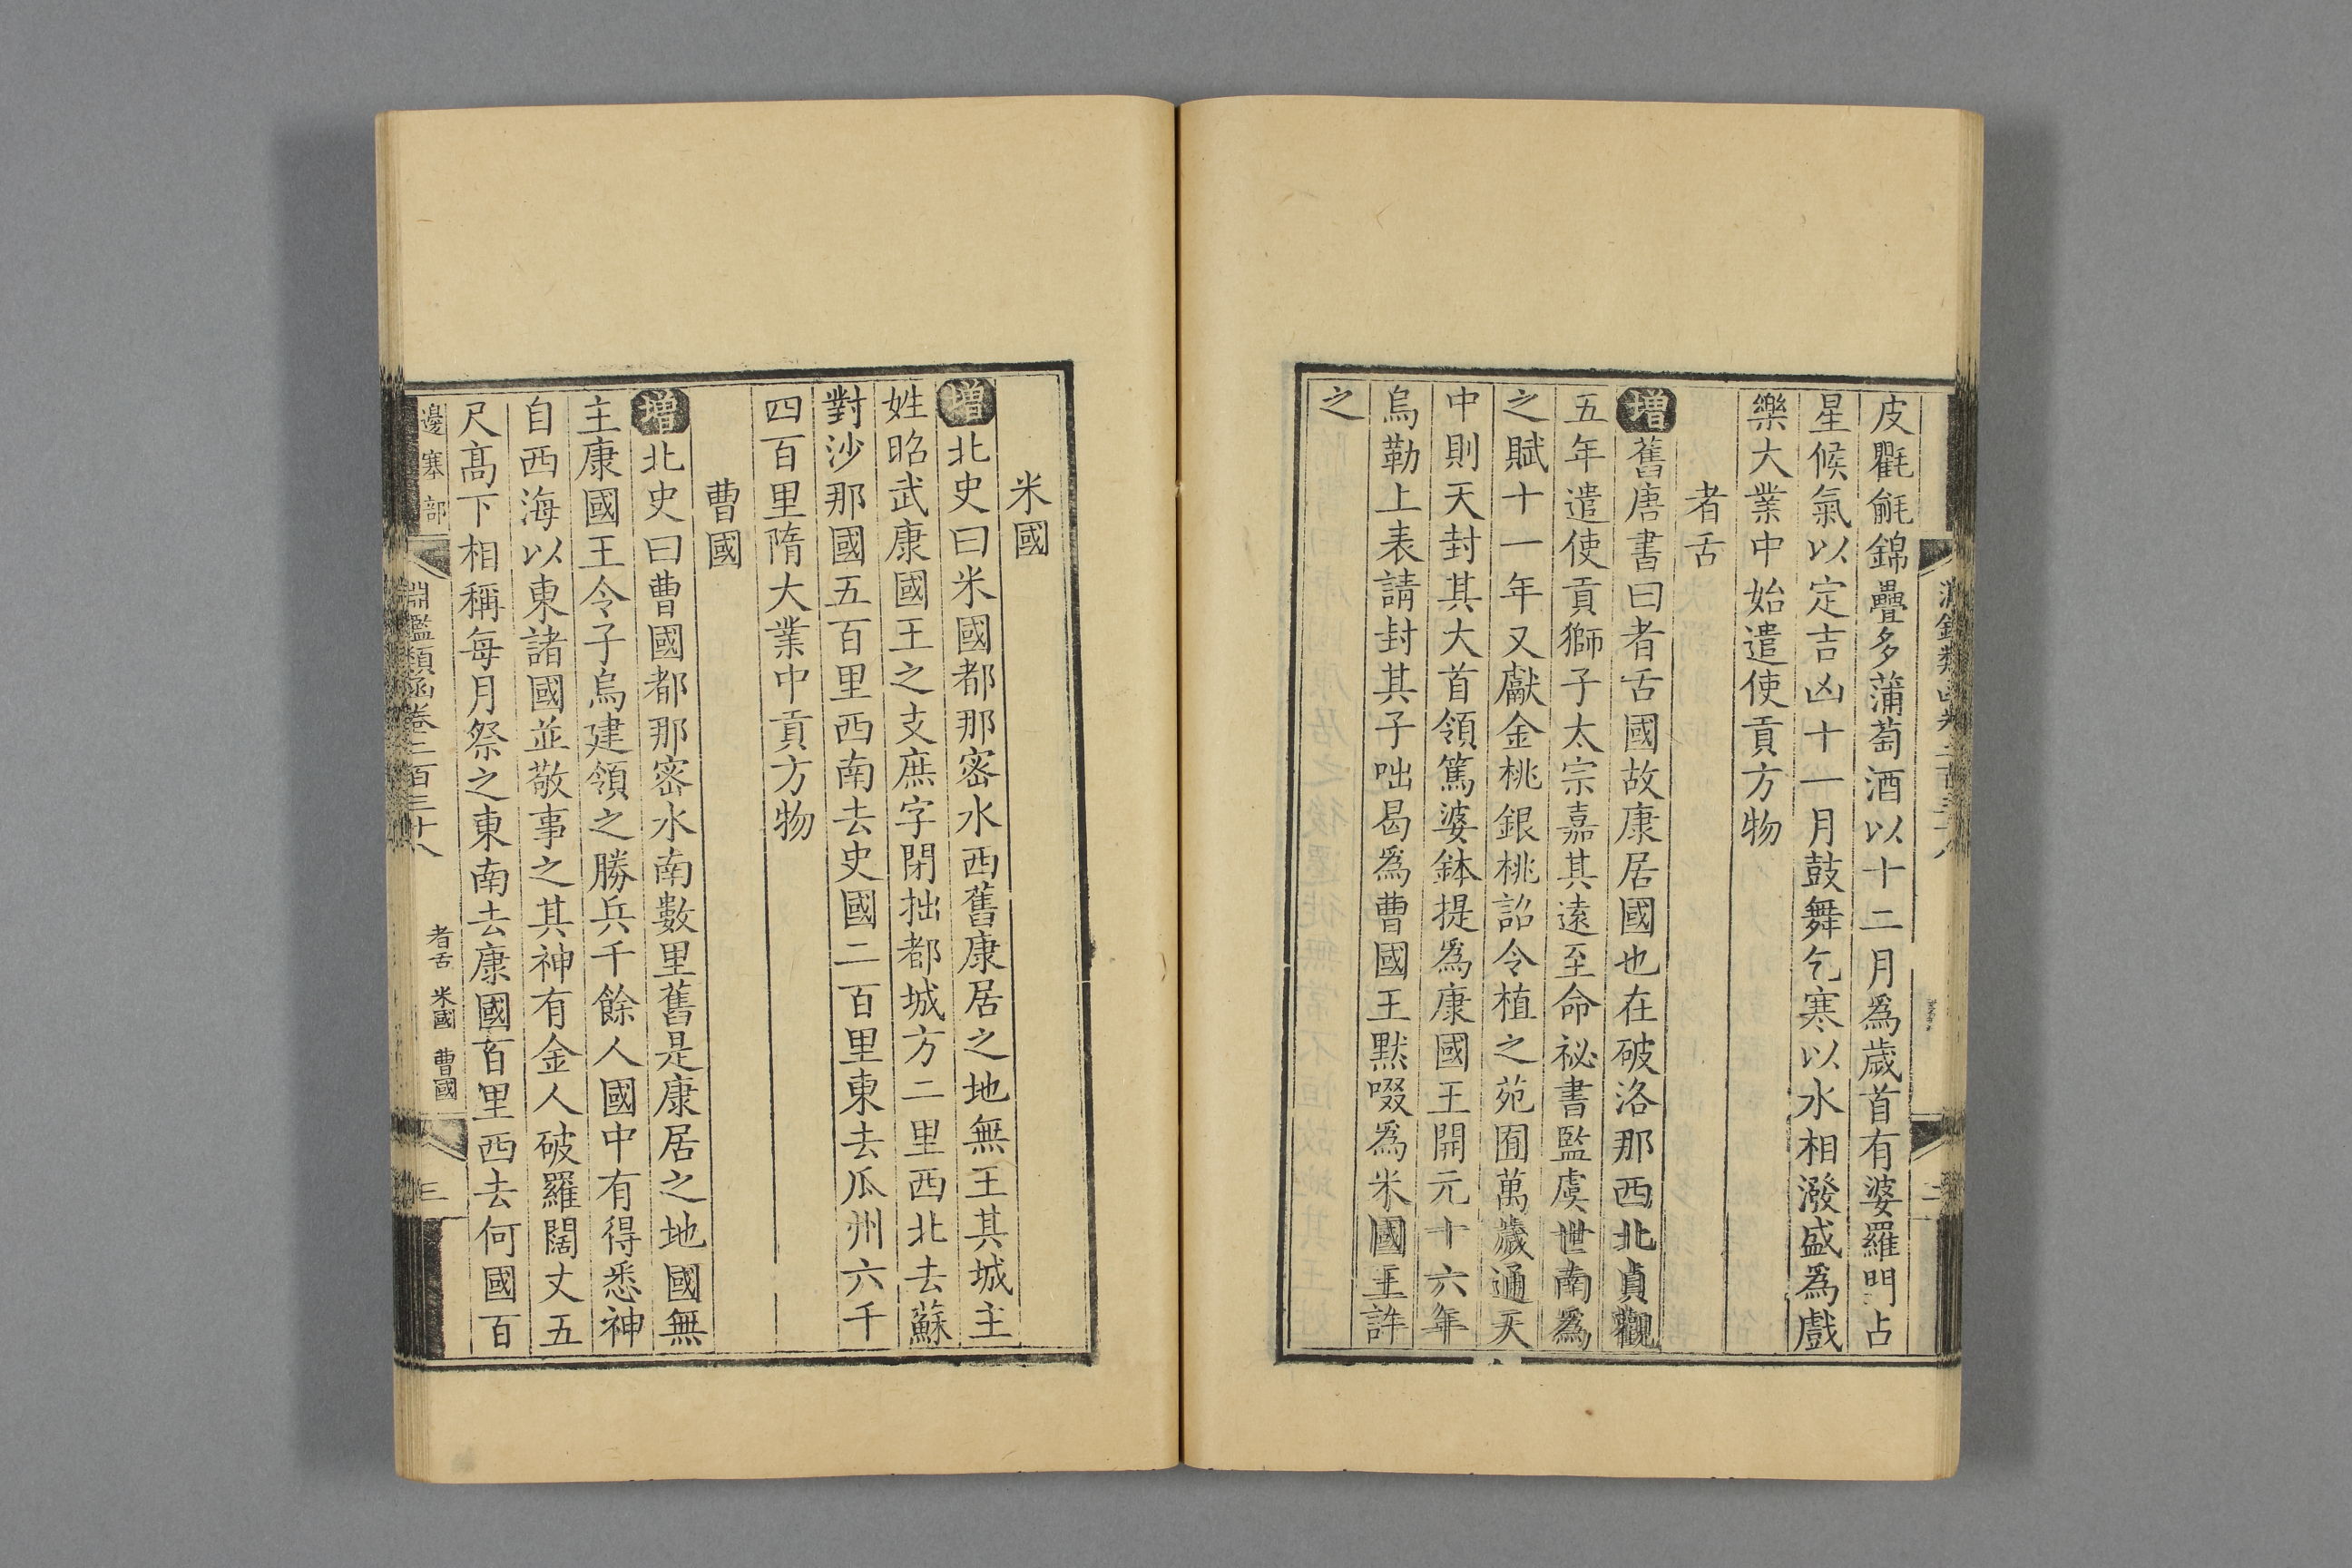 皮氍㲣錦疊多蒲萄酒以十二月爲歲首有婆羅門占
星候氣以定吉凶十一月鼓舞乞寒以水相潑盛爲戲
樂大業中始遣使貢方物
者舌
增舊唐書曰者舌國故康居國也在破洛那西北貞觀
五年遣使貢獅子太宗嘉其遠至命祕書監虞世南爲
之賦十一年又獻金桃銀桃詔令植之苑囿萬歲通天
中則天封其大首領篤婆鉢提爲康國王開元十六年
烏勒上表請封其子咄曷爲曹國王默啜爲米國王許
之
二
米國
增北史曰米國都那密水西舊康居之地無王其城主
姓昭武康國王之支庶字閉拙都城方二里西北去蘇
對沙那國五百里西南去史國二百里東去瓜州六千
四百里隋大業中貢方物
曹國
增北史曰曹國都那密水南數里舊是康居之地國無
主康國王令子烏建領之勝兵千餘人國中有得悉神
自西海以東諸國並敬事之其神有金人破羅闊丈五
尺高下相稱每月祭之東南去康國百里西去何國百
邊塞部
淵鑑類函卷二百三十八
者舌 米國 曹國
三